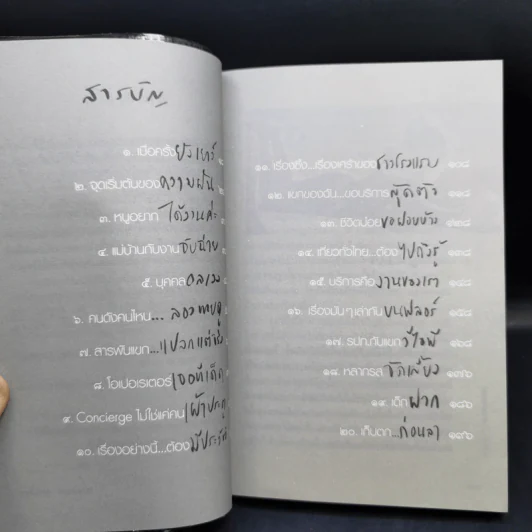 สารบัญ
๑. เมื่อครั้งยังเยาว์
๒. จุดเริ่มต้นของความฝัน
๓. หนูอยากได้งานค่ะ
๔. แม่บ้านกับงานจับฉ่าย
๕. บุคคลอลเวง
๖. คนดังคนไหน...ลองทายดู
๗. สารพันแขก...แปลกแต่จริง
๘. โอเปอเรเตอร์เจอทีเด็ด
๙. Concierge ไม่ใช่แค่คนเฝ้าประตู
๑๐. เรื่องอย่างนี้...ต้องมีประวัติ
๑๑. เรื่องซึ้ง...เรื่องเศร้าของชาวโรงแรม ๑๐๘
๑๒. แขกของฉัน...ขอบริการสุดตัว ๑๑๘
๑๓. ชีวิตน้อยๆของฝอยห้าง ๑๒๘
๑๔. เที่ยวทั่วไทย...ต้องไปถึงรู้
๑๕. บริการคืองานของเรา
๑๖. เรื่องมันๆเล่ากันบนฟลอร์ ๑๕๘
๑๗. รปภ.กับแขกวีไอพี ๑๖๘
๑๘. หลากรสจัดเลี้ยง ๑๗๖
๑๙. เด็กฝาก ๑๘๖
๒๐. เก็บตก...ก่อนลา ๑๙๖